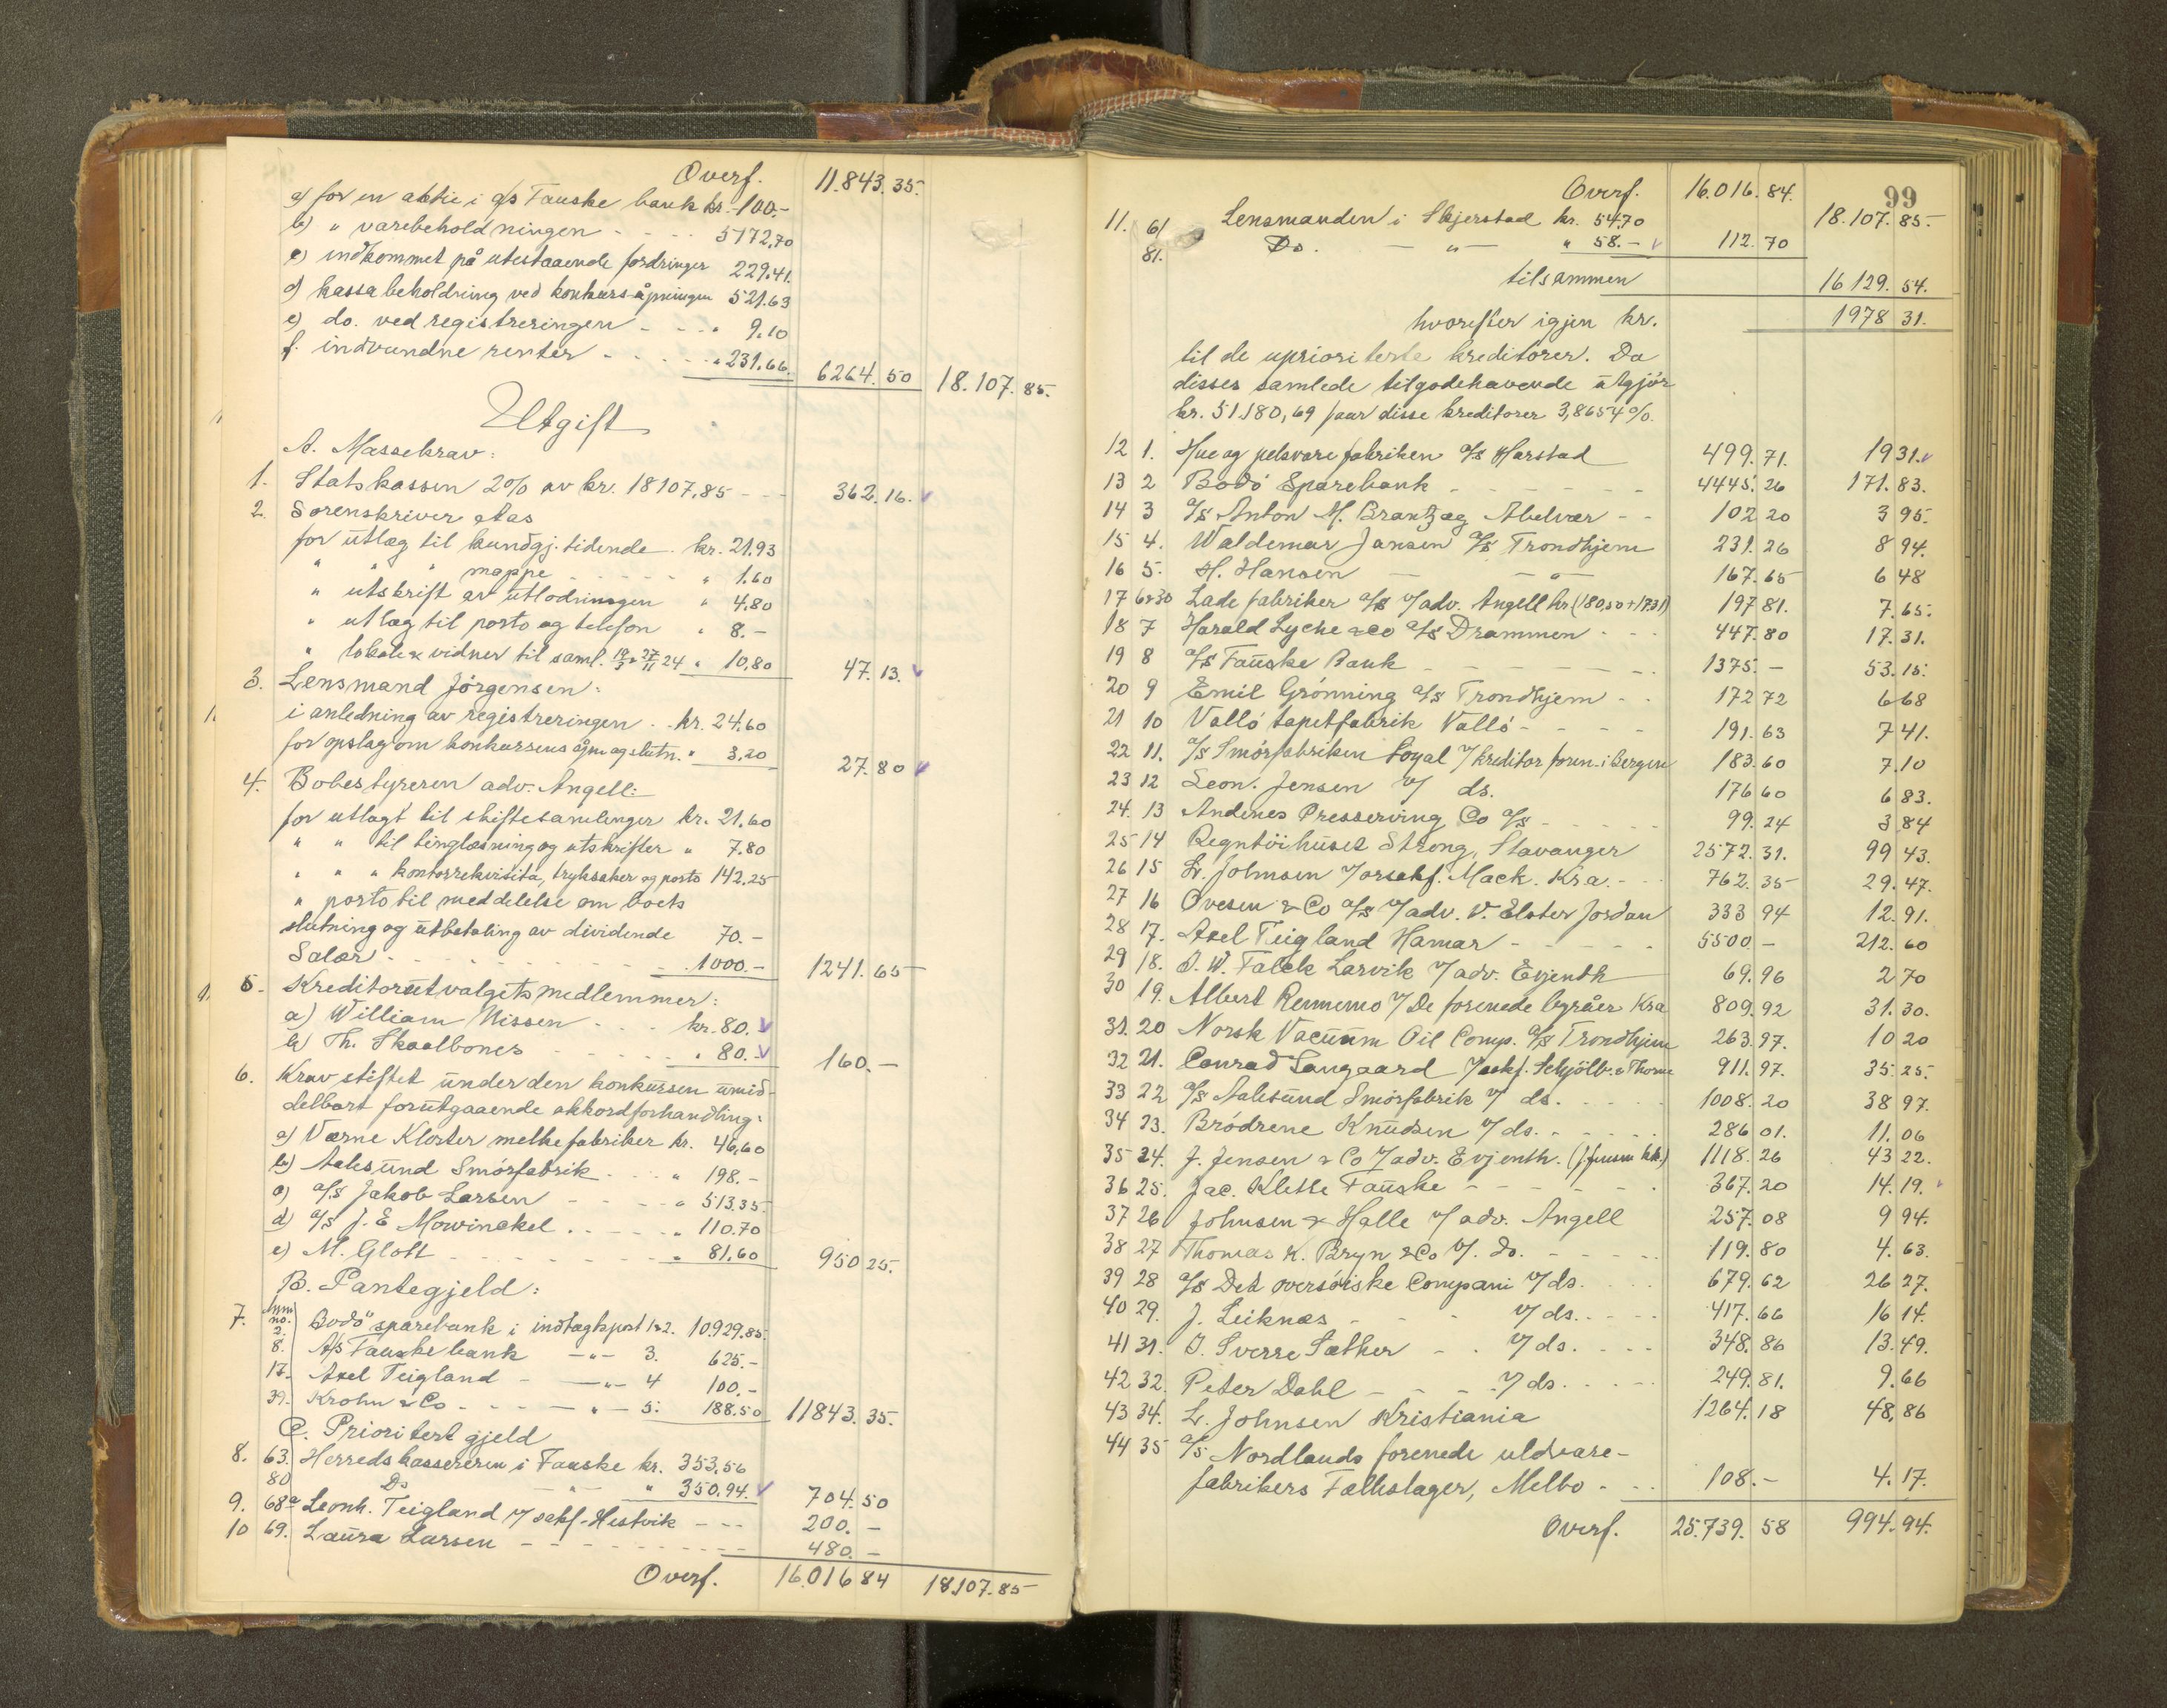 Overf. 11.843.35.
a) for en aktie i a/s Fauske bank kr. 100.-
b) " varebeholdningen - - - - 5172,70
c) indkommet på utestaaende fordringer 229.41.
d) kassabeholdning ved konkursåpningen 521.63
e) do. ved registreringen - - - " 9.10
f. indvundne renter - - - - - " 231.66. 6264.50 18.107.85.
Utgift
A. Massekrav:
1. Statskassen 2% av kr. 18107,85 - - - 362.16.
2. Sorenskriver
for utlæg til kundgj.tidende kr. 21.93
" " " mappe - - - - - " 1.60
" utskrift av utlodningen " 4.80
" utlæg til porto og telefon " 8.-
" lokale & vidner til saml. 19/3 & 27/11 24 " 10,80 47.13.
3. Lensmand Jörgensen:
i anledning av registreringen - kr. 24,60
for opslag om konkursens åpn. og slutn. " 3,20 27.80
4. Bobestyreren adv. Angell:
for utlagt til skiftesamlinger kr. 21.60
" " til tinglæsning og utskrifter " 7.80
" " " kontorrekvisita, tryksaker og porto 142.25
" porto til meddelelse om boets
slutning og utbetaling av dividende 70.-
Salær - - - - - - - - 1000.- 1241.65
5. Kreditorutvalgets medlemmer:
a) William Nissen - - - kr. 80.
b) Th. Skaalbones - - - - " 80.- 160.-
6. Krav stiftet under den konkursen umid-
delbart forutgaaende akkordforhandling:
a) Værne Kloster melkefabriker kr. 46,60
b) Aalesund Smörfabrik - - - " 198.-
c) a/s Jakob Larsen - - - - " 513.35
d) a/s J. E Mowinckel - - - - " 110.70
e) M. Glott - - - - - - " 81,60 950 25.
B. Pantegjeld:
7. Anm. no. 2. Bodö sparebank i indtægtspost 1&2. 10.929.85.
8. A/s Fauske bank -"- 3. 625.-
17. Axel Teigland - -"- 4 100.-
39. Krohn & Co - - - -"- 5. 188.50 11843.35.
C. Prioritert gjeld
8. 63. Herredskassereren i Fauske kr. 353,56
80 Do -"- " 350.94. 704.50
9. 68a Leonh. Teigland v/ sakf. Hestvik - - - 200.-
10 69. Laura Larsen - - - - - - - - 480.-
Overf. 16.016 84 18.107.85
99
Overf. 16.016.84. 18.107.85.
11. 61 Lensmanden i Skjerstad kr. 54,70
81. Do. - " - " 58.- 112.70
tilsammen 16 129.54.
hvorefter igjen kr. 1978 31.
til de uprioriterte kreditorer. Da
disses samlede tilgodehavende utgjör
kr. 51.180,69 faar disse kreditorer 3,8654 %.
12 1. Hue og pelsvarefabriken a/s Harstad 499.71. 19 31.
13 2 Bodö Sparebank - - - - - 4445.26 171.83.
14 3 a/s Anton M. Brantzæg Abelvær - - 102 20 3 95.
15 4. Waldemar Jansen a/s Trondhjem 231.26 8 94.
16 5. H. Hansen - " - 167.65 6 48
17 6&30 Lade fabriker a/s v/adv. Angell kr (180,50+17.31) 197 81. 7.65.
18 7 Harald Lycke & Co a/s Drammen - - - 447.80 17.31.
19 8 a/s Fauske Bank - - - - - - 1375.- 53.15.
20 9 Emil Grönning a/s Trondhjem - - 172 72 6 68
21 10 Vallö tapetfabrik Vallö - - - - 191.63 7 41.
22 11. a/s Smörfabriken Loyal v/ kreditorforen. i Bergen 183.60 7.10
23 12 Leon. Jensen v/ ds. 176 60 6 83.
24. 13 Andenes Presserving Co a/s - - - - 99.24 3 84
25 14 Regntöihuset Strong, Stavanger 2572.31. 99 43.
26 15 L. Johnsen v/orsakf. Mack. Kra. - - 762.35 29.47.
27 16 Ovesen & Co a/s v/adv. V. Elster Jordan 333 94 12.91.
28 17. Axel Teigland Hamar - - - - - 5500 - 212.60
29 18. J. W. Falck Larvik v/adv. Evjenth 69.96 2 70
30 19. Albert Rennemo v/ De forenede byråer Kra 809.92 31.30.
31. 20 Norsk Vacuum Oil Comp. a/s Trondhjem 263.97. 10 20
32 21. Conrad Langaard v/sakf. Schjölb. & Thorne 911.97. 35.25.
33 22 a/s Aalesund Smörfabrik v/ ds. - - - - 1008.20 38 97.
34 23. Brödrene Knudsen v/ ds. - - - - - 286 01. 11.06
35 24. J. Jensen & Co v/adv. Evjenth. 1118.26 43 22.
36 25. Jac. Klette Fauske - - - - - - 367.20 14.19.
37 26 Johnsen & Halle v/ adv. Angell 257.08 9 94.
38 27 Thomas K. Bryn & Co v/. do. - - - - 119.80 4.63.
39 28 a/s Det oversöiske Compani v/ ds. - - - 679.62 26 27.
40 29. J. Leiknes - - - v/ ds. - - - 417.66 16 14.
41 31. O. Sverre Sæther - - v/ ds. - - - 348.86 13.49.
42 32. Peter Dahl - - - v/ ds. - - - 249.81. 9.66
43 34. L. Johnsen Kristiania 1264.18 48,86
44 35 a/s Nordlands forenede uldvare-
fabrikers Fællslager, Melbo - - - 108.- 4.17.
Overf. 25.739.58 994.94.